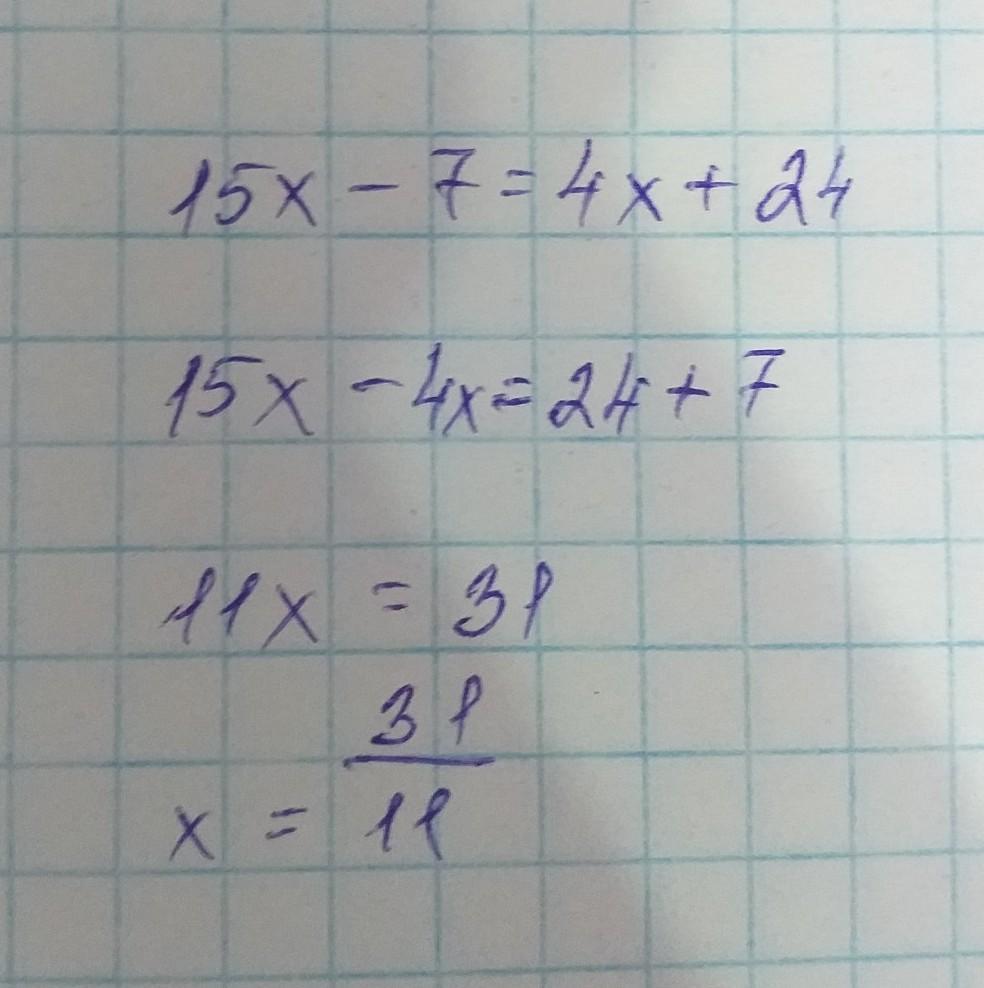 15x - 7 = 4x + 24
15x - 4x = 24 + 7
11x = 31
x = 31/11